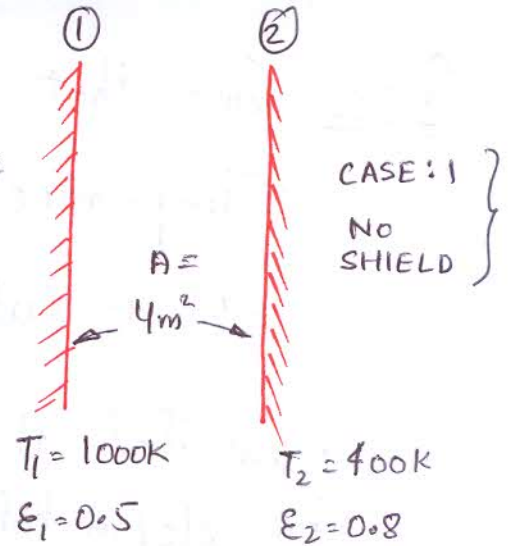 ① ②
CASE: 1
NO
SHIELD
A =
4m²
T₁ = 1000K T₂ = 400K
ε₁ = 0.5 ε₂ = 0.8